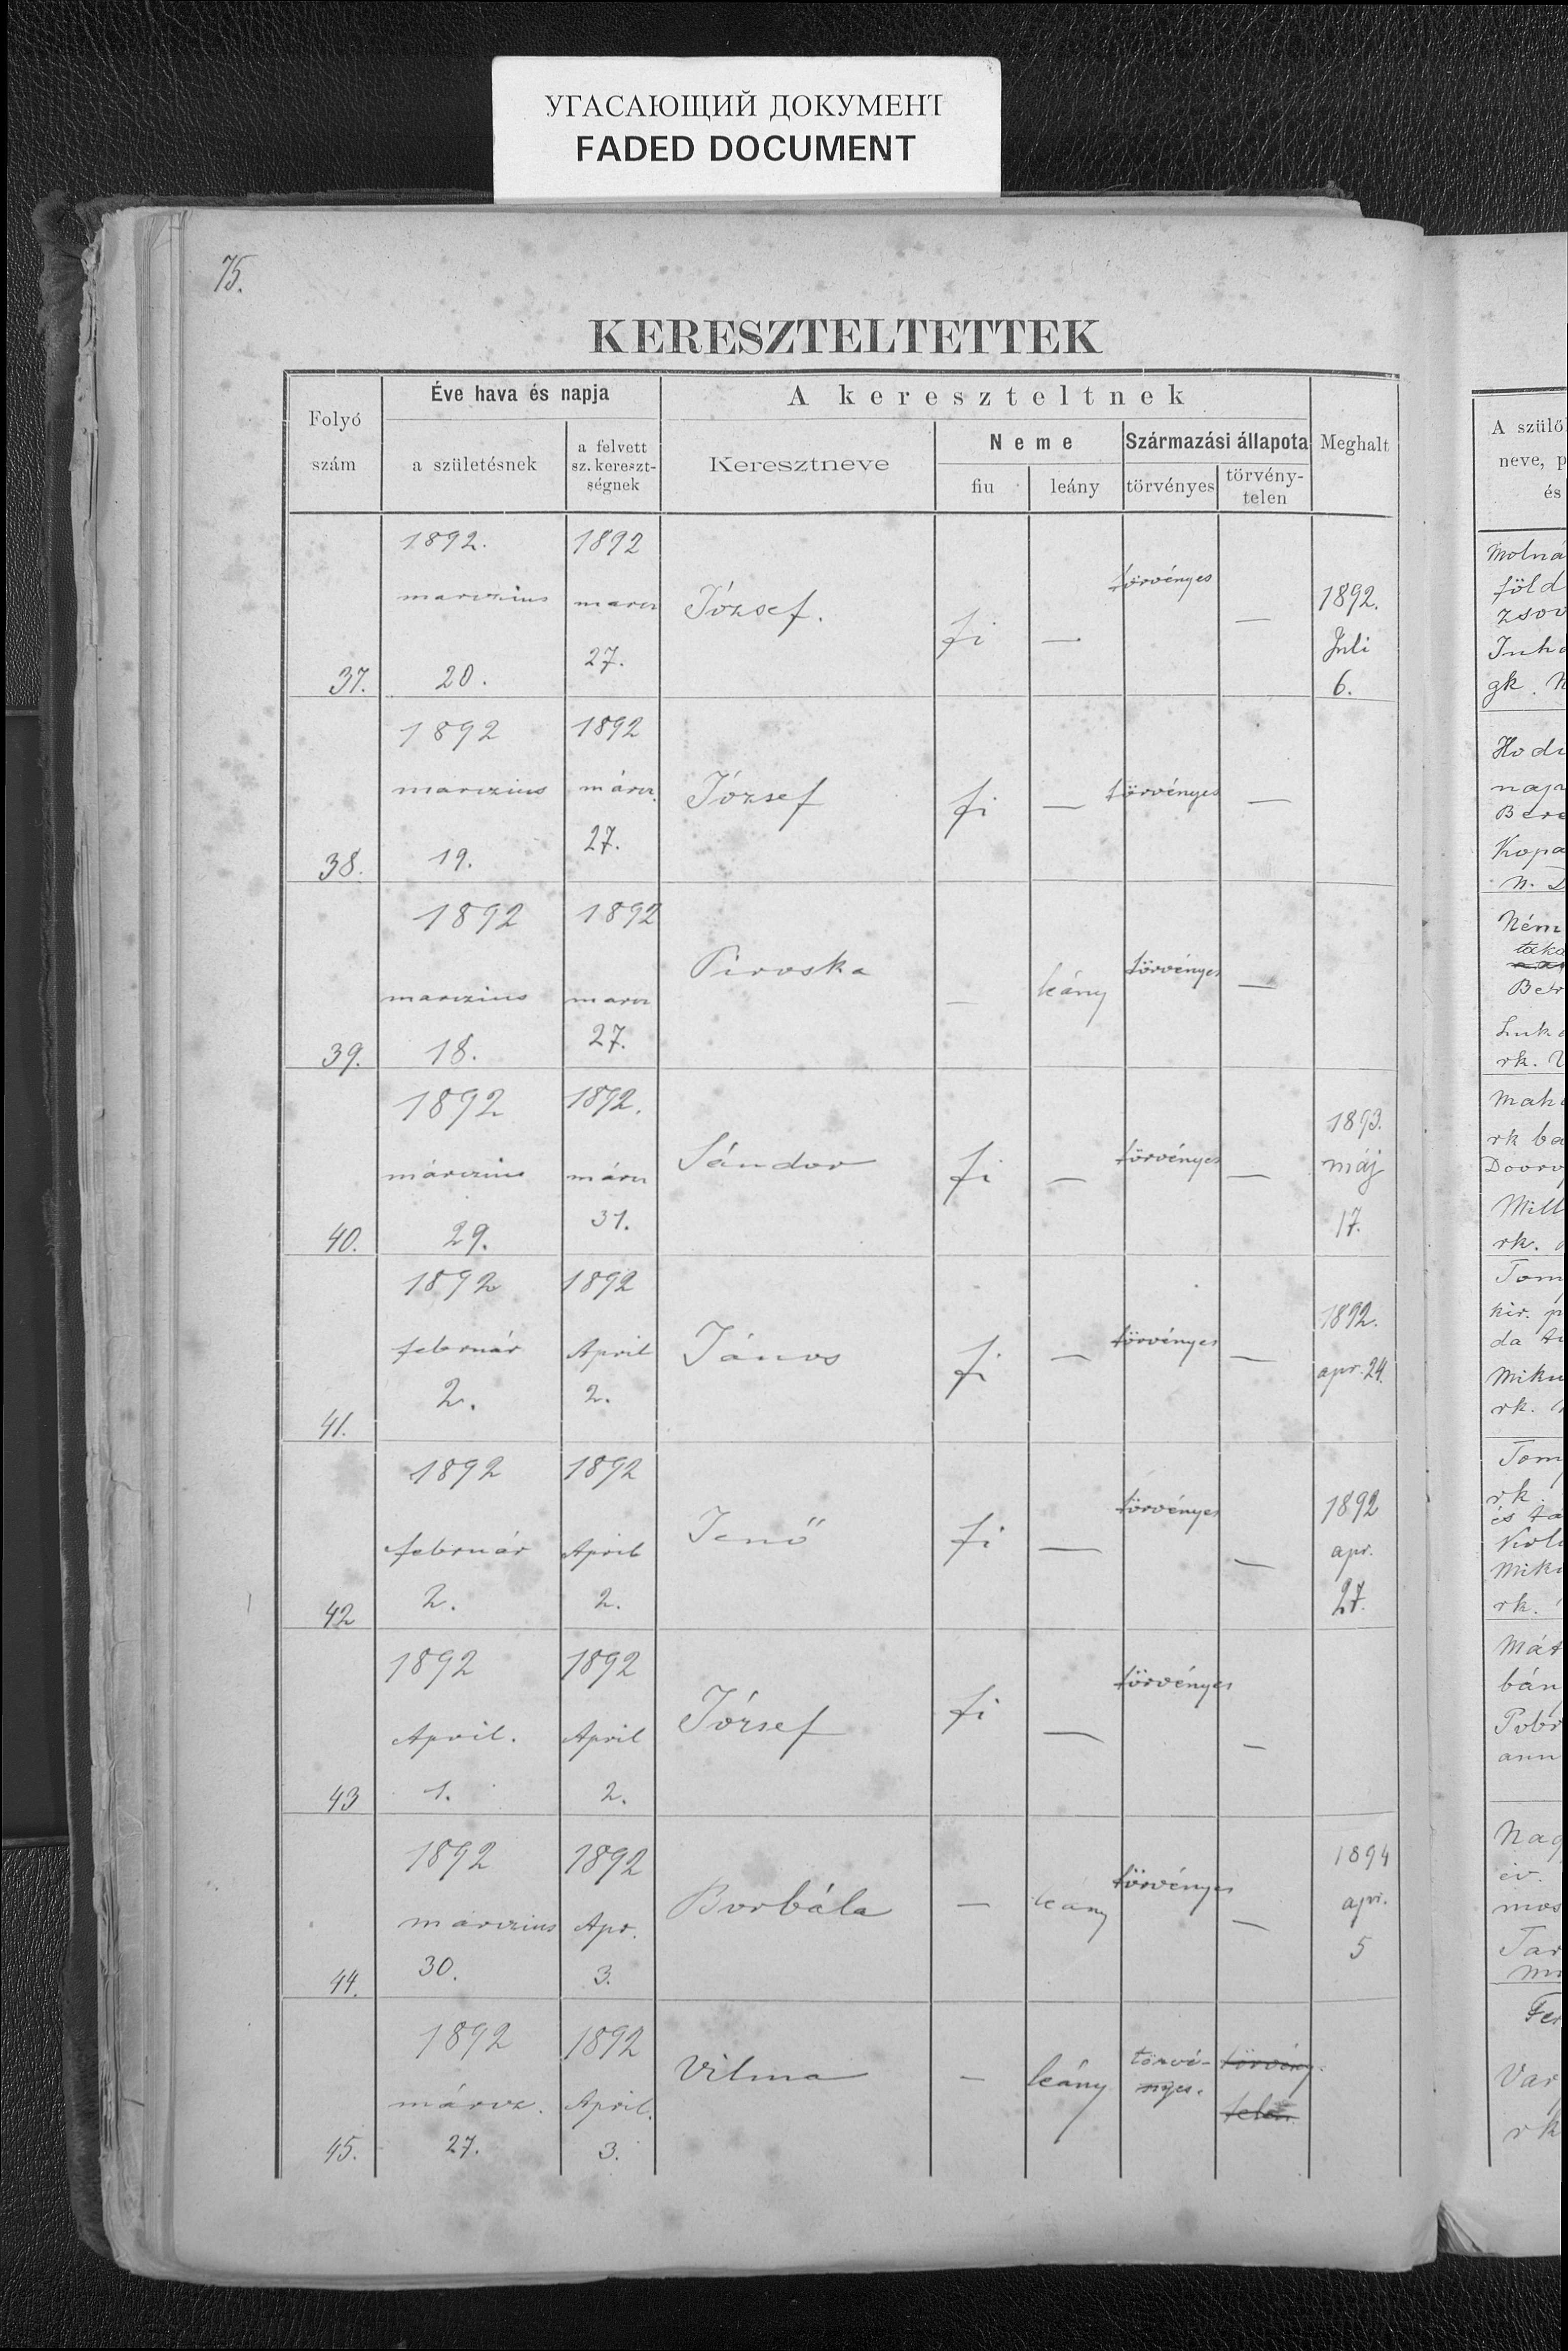 УГАСАЮЩИЙ ДОКУМЕНТ
FADED DOCUMENT
75.
KERESZTELTETTEK
Folyó szám
Éve hava és napja
a születésnek
a felvett sz. kereszt-ségnek
A kereszteltnek
Keresztneve
Neme
fiu
leány
Származási állapota
törvényes
törvény-telen
Meghalt
37. 1892. marczius 20. 1892 marcz 27. József. fi — törvényes — 1892. Juli 6.
38. 1892 marczius 19. 1892 márcz. 27. József fi — törvényes —
39. 1892 marczius 18. 1892 marcz 27. Piroska — leány törvényes —
40. 1892 márczius 29. 1892. márcz 31. Sándor fi — törvényes — 1893. máj 17.
41. 1892 február 2. 1892 April 2. János fi — törvényes — 1892. apr. 24.
42 1892 február 2. 1892 April 2. Jenő fi — törvényes — 1892 apr. 27.
43 1892 April. 1. 1892 April 2. József fi — törvényes —
44. 1892 márczius 30. 1892 Apr. 3. Borbála — leány törvényes — 1894 apr. 5
45. 1892 márcz. 27. 1892 April. 3. Vilma — leány törvé-nyes. törvény-telen
A szülő
neve, p
és
Molná
föld
zsov
Juh
gk. N
Hodi
nap
Bere
Kopa
N. D
Ném
taka
Bet
Luk
rk.
Mah
rk ba
Dooro
Mill
rk.
Tom
kir. p
da
Miku
rk.
Tom
rk.
és ta
Kol
Mik
rk.
Mát
bán
Pobr
ann
Nag
év.
mos
Tar
Fer
Var
rk